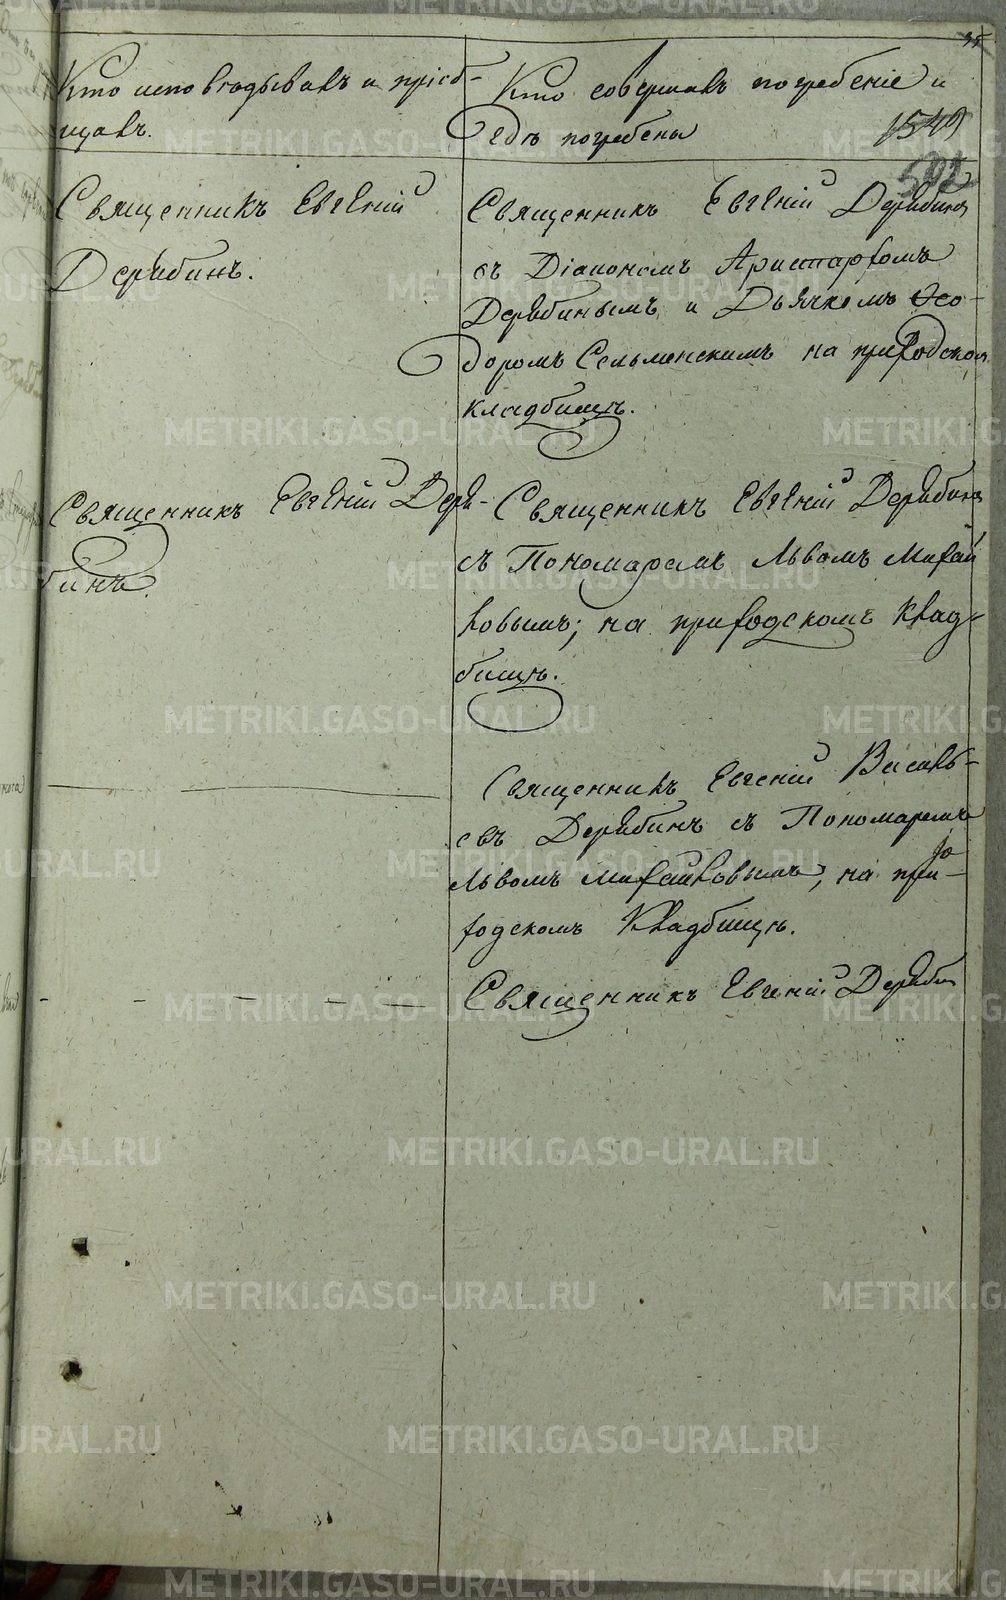 Кто исповѣдывалъ и пріоб-
щалъ.
Кто совершалъ погребеніе и
гдѣ погребены
1549
Священникъ Евгеній
Дерябинъ.
Священникъ Евгеній Дерябинъ
съ Діакономъ Аристархомъ
Дерябинымъ и Дьячкомъ Ѳео-
доромъ Сельменскимъ на приходском
кладбищѣ.
Священникъ Евгеній Деря-
бинъ.
Священникъ Евгеній Дерябинъ
съ Пономаремъ Львомъ Михай
ловымъ; на приходскомъ клад-
бищѣ.
Священникъ Евгеній Василь-
евъ Дерябинъ съ Пономаремъ
Львомъ Михайловымъ, на при-
ходскомъ кладбищѣ.
Священникъ Евгеній Деряби
METRIKI.GASO-URAL.RU